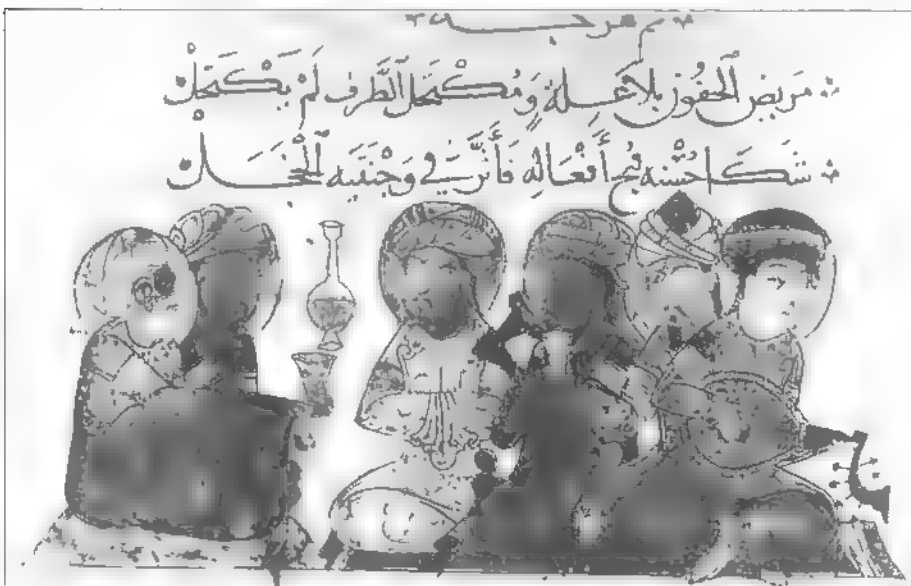 مَريض الجفون بلا عِلة وَمُكْتحل الطَّرف لَمْ يَكْتحلْ
شَكَا حُسْنه قبح أَفْعَاله فَأَثَّرَ في وَجْنَتيه الْخَجَلْ